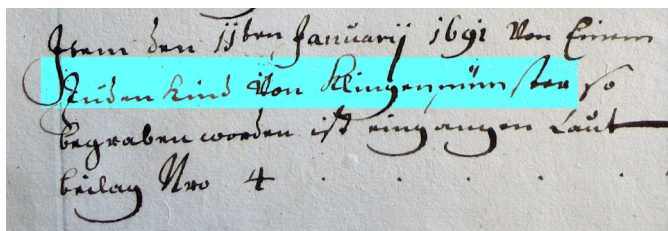 Item den 11ten Januarij 1691 Von Einem
Juden Kind Von Klingenmünster so
begraben worden ist eingangen Laut
beilag Nro 4 . . . . .